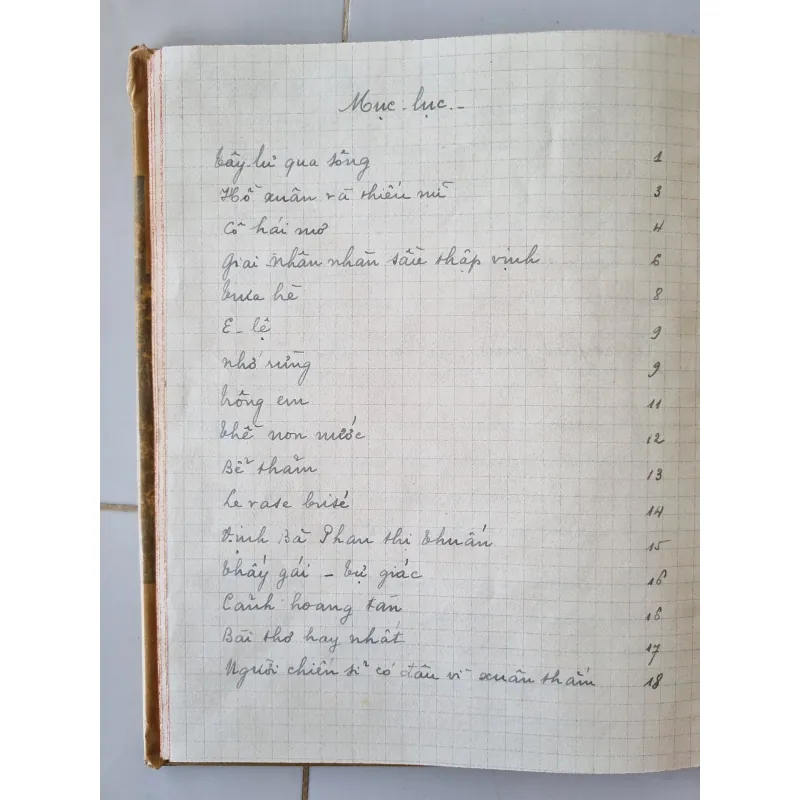 Mục - lục -
Gây lư qua sông 1
Hồ xuân và thiếu nữ 3
Cô hái mơ 4
Giai nhân nhàn sầu thập vịnh 6
Trưa hè 8
E - lệ 9
nhớ rừng 9
trông em 11
thề non nước 12
Bể thẳm 13
Le vase brisé 14
Vịnh Bà Phan thị thuấn 15
thầy gái - tự giác 16
Cảnh hoang tàn 16
Bài thơ hay nhất 17
Người chiến sĩ có đâu vì xuân thắm 18